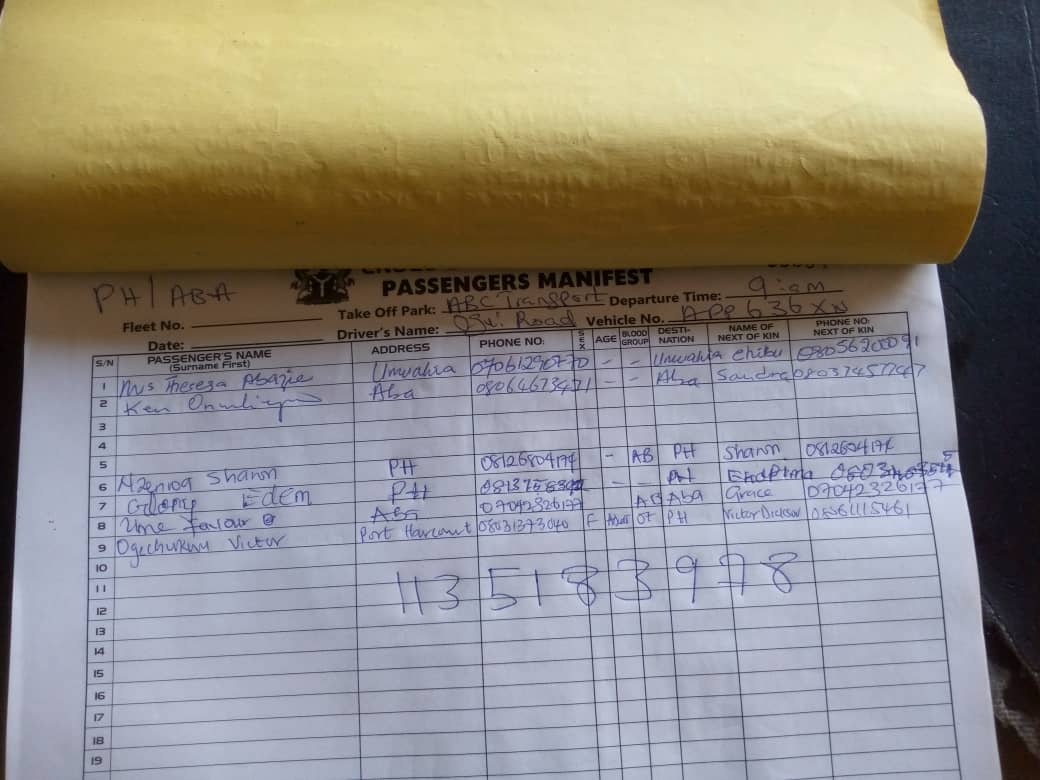 PASSENGERS MANIFEST
PH / ABA
Take Off Park: ABC Transport Departure Time: 9:am
Fleet No.
Date: Driver's Name: Road Vehicle No. APP 636 XN
S/N PASSENGER'S NAME (Surname First) ADDRESS PHONE NO: SEX AGE BLOOD GROUP DESTI-NATION NAME OF NEXT OF KIN PHONE NO: NEXT OF KIN
1 Mrs Theresa Abazie Umuahia 07061290770 - - Umuahia Chibu 08056200091
2 Ken Aba 08064673471 - - Aba Sandra 08037457747
3
4
5
6 Sharon PH 08126804174 - AB PH Sharon
7 Edem PH - - PH
8 Ume favour Aba 07042326177 AB Aba Grace 07042326177
9 Ogechukwu Victor Port Harcourt 08031373040 F Adult O+ PH Victor Dickson
10
11 113 518 3 978
12
13
14
15
16
17
18
19